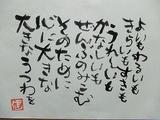 よいもわるいも
きらいもすきも
うれしいも
かなしいも
ぜんぶのみこむ
そのために
心に大きな
大きなうつわを